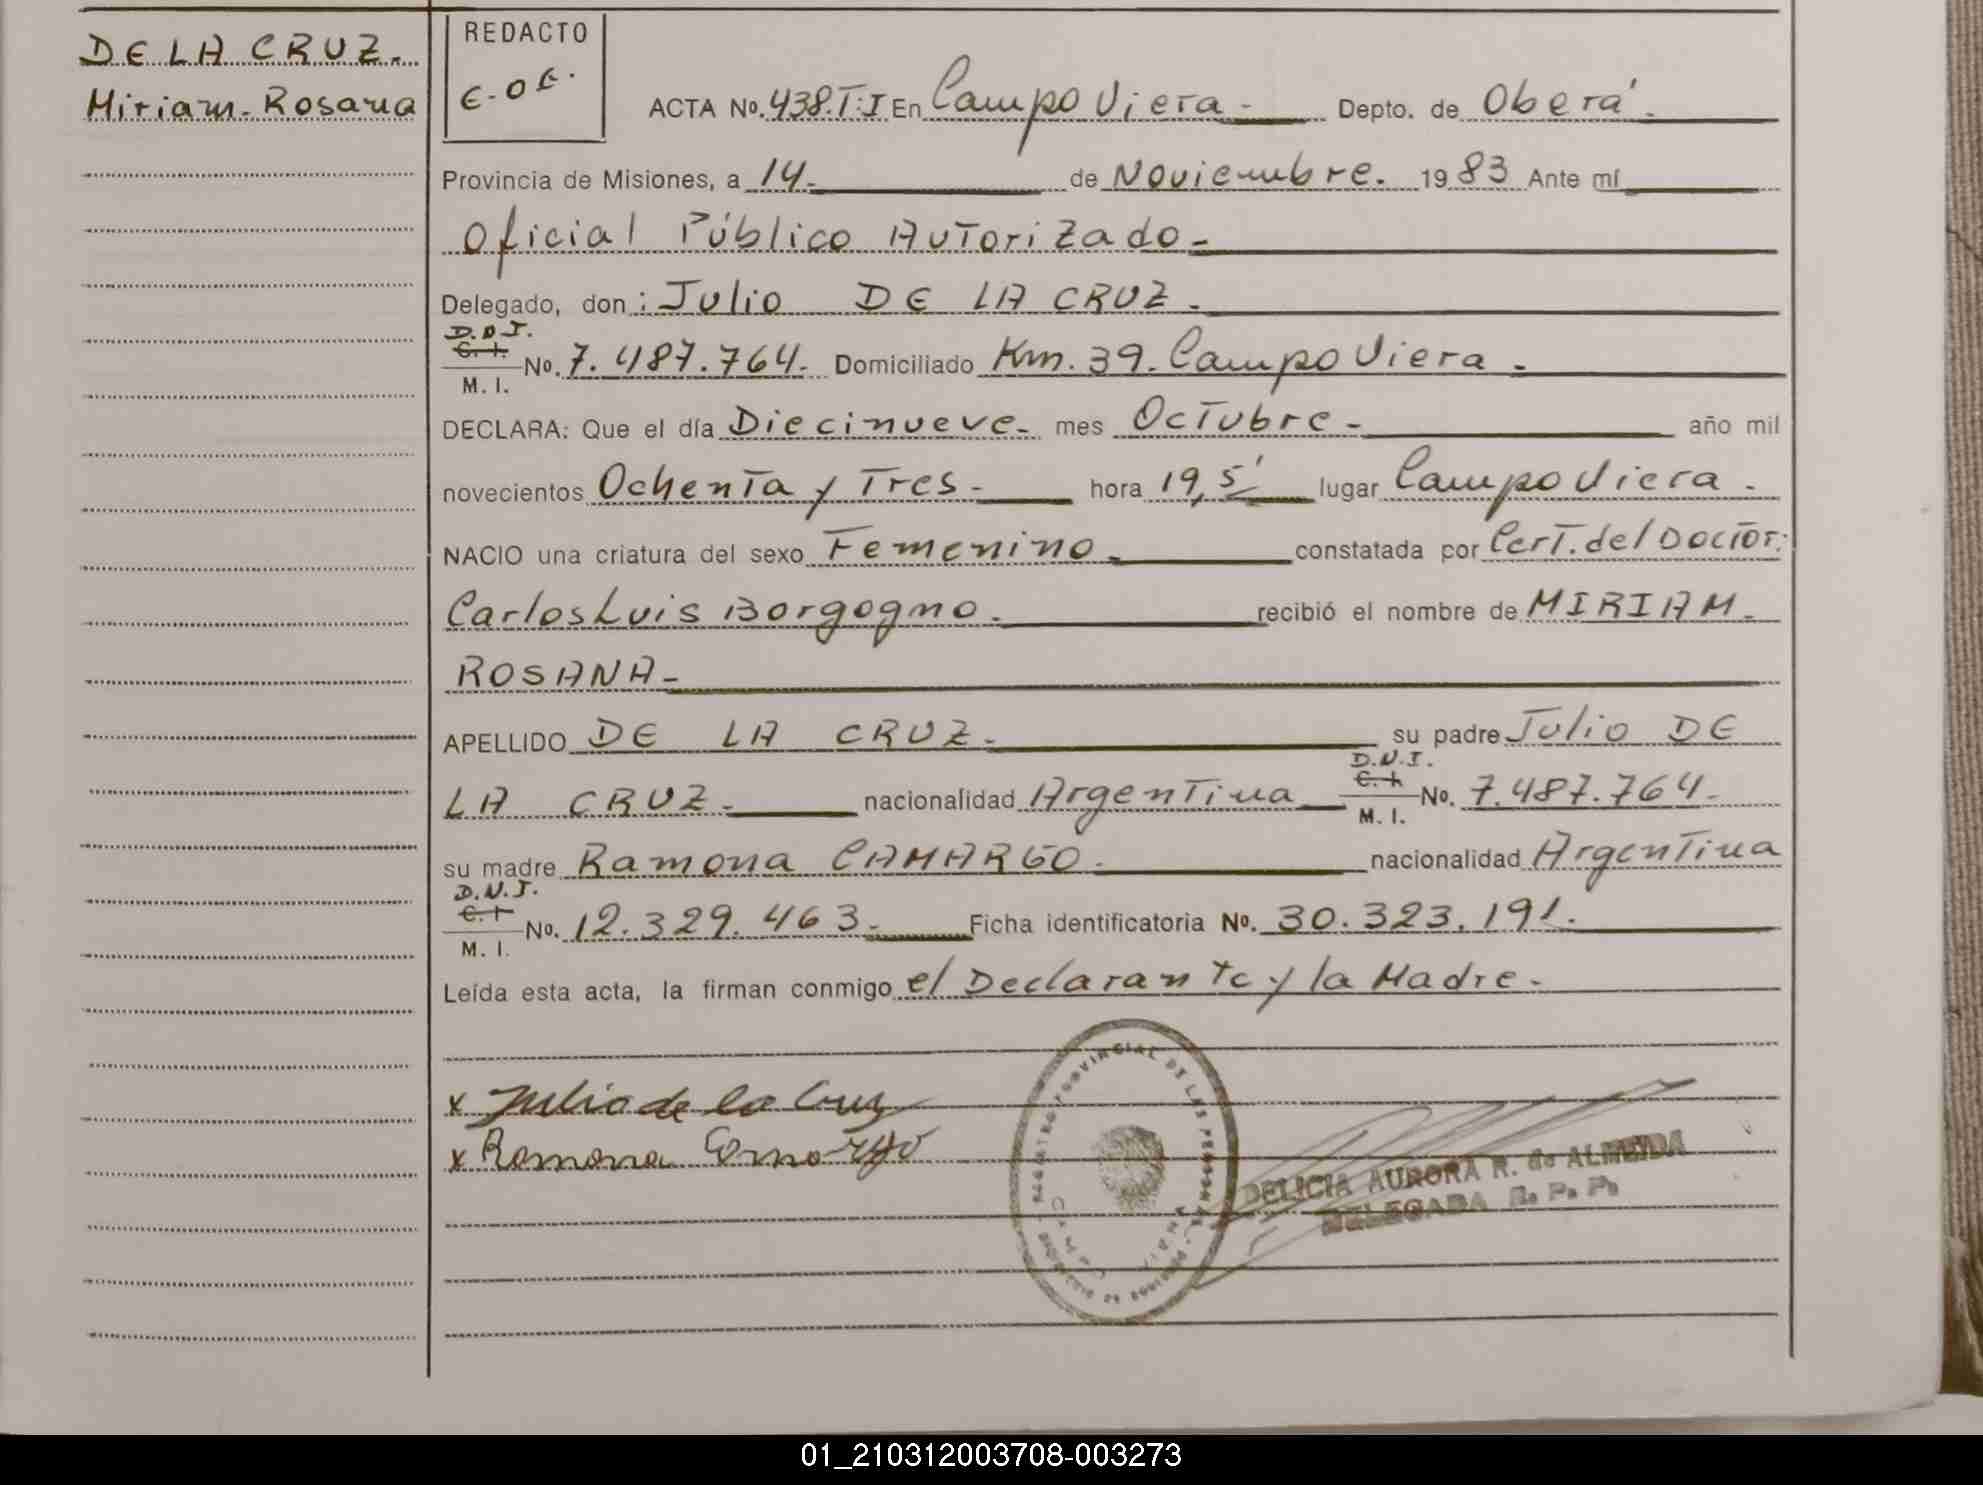 DE LA CRUZ.
Miriam-Rosana
REDACTO
E.O.E.
ACTA No. 438.T:I En Campo Viera - Depto. de Oberá.
Provincia de Misiones, a 14. de Noviembre. 1983 Ante mí
Oficial Público Autorizado-
Delegado, don: Julio DE LA CRUZ.
D.N.I.
C. I.
M. I.
No. 7.487.764. Domiciliado Km. 39. Campo Viera -
DECLARA: Que el día Diecinueve- mes Octubre- año mil
novecientos Ochenta y Tres- hora 19,5' lugar Campo Viera -
NACIO una criatura del sexo Femenino- constatada por Cert. del Doctor:
Carlos Luis Borgogno. recibió el nombre de MIRIAM-
ROSANA-
APELLIDO DE LA CRUZ- su padre Julio DE
LA CRUZ- nacionalidad Argentina D.N.I. C. I. M. I. No. 7.487.764-
su madre Ramona CAMARGO. nacionalidad Argentina
D.N.I.
C. I.
M. I.
No. 12.329.463- Ficha identificatoria No. 30.323.191.
Leída esta acta, la firman conmigo el Declarante y la Madre-
x Julio de la Cruz
x Ramona Camargo
REGISTRO PROVINCIAL DE LAS PERSONAS
DELICIA AURORA R. de ALMEIDA
DELEGADA R. P. P.
01_210312003708-003273